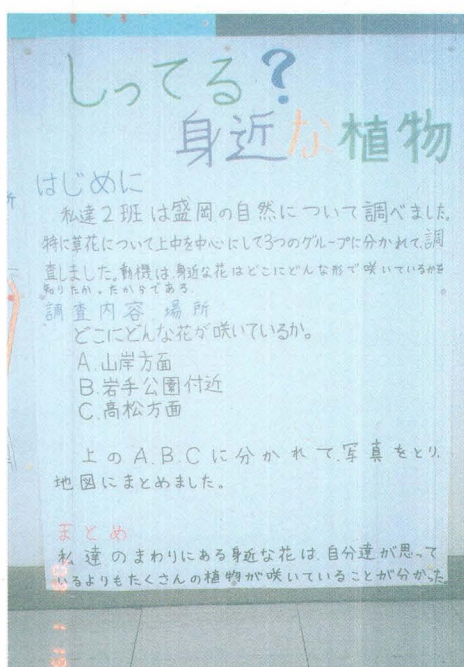 しってる?
身近な植物
はじめに
私達2班は盛岡の自然について調べました。
特に草花について上中を中心にして3つのグループに分かれて、調
査しました。動機は身近な花はどこにどんな形で咲いているかを
知りたかったからである。
調査内容 場所
どこにどんな花が咲いているか。
A.山岸方面
B.岩手公園付近
C.高松方面
上のA.B.Cに分かれて、写真をとり、
地図にまとめました。
まとめ
私達のまわりにある身近な花は、自分達が思って
いるよりもたくさんの植物が咲いていることが分かった